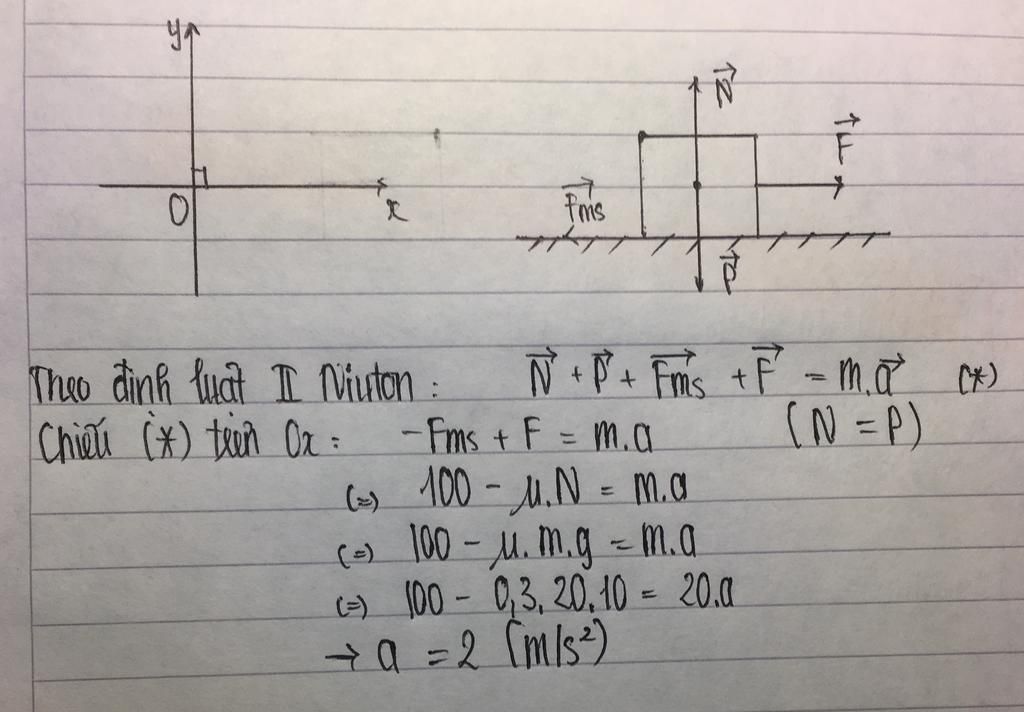 y
N⃗
F⃗
O
x
F⃗ms
P⃗
Theo định luật II Niuton : N⃗ + P⃗ + F⃗ms + F⃗ = m.a⃗ (*)
Chiếu (*) trên Ox : -Fms + F = m.a (N = P)
(=) 100 - μ.N = m.a
(=) 100 - μ.m.g = m.a
(=) 100 - 0,3.20.10 = 20.a
→ a = 2 (m/s²)